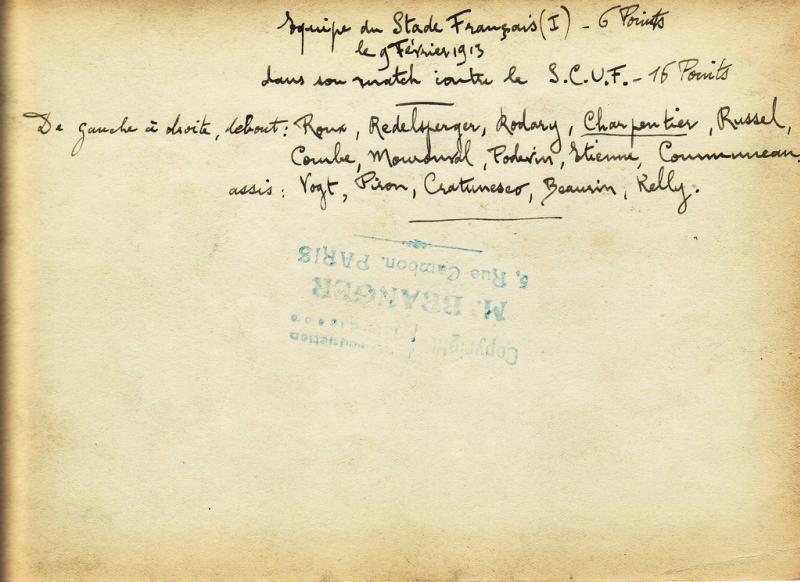 Equipe du Stade Français (I) - 6 Points
le 9 Février 1913
dans son match contre le S.C.U.F. - 16 Points
De gauche à droite, debout: Roux, Redelsperger, Rodary, Charpentier, Russel,
Combe, Mouronval, Poderin, Etienne, Communeau.
assis: Vogt, Piron, Cratunesco, Beaurin, Kelly.
5, Rue Cambon. PARIS
M. BRANGER
Copyright